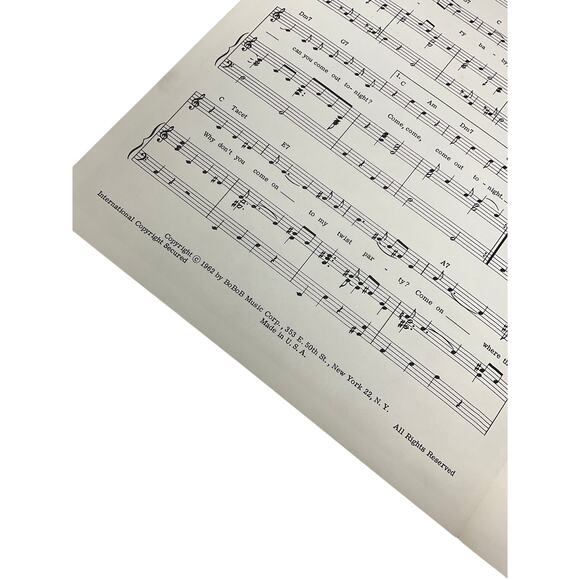 C
ry ba - by
Dm7 G7
can you come out to- night? Come, come, come out to - night.
1. C Am Dm7
C Tacet E7 A7
Why don't you come on to my twist par - ty? Come on where th
Copyright © 1962 by BoBoB Music Corp., 353 E. 50th St., New York 22, N. Y.
International Copyright Secured Made in U. S. A. All Rights Reserved